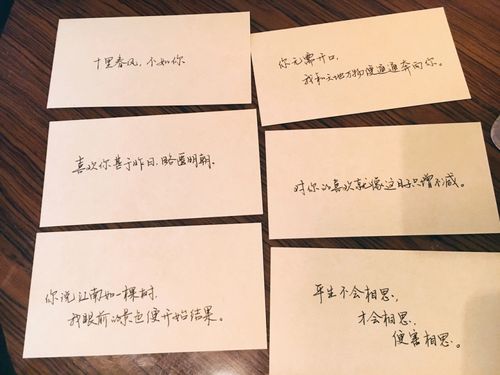 十里春风，不如你.
你无需开口，
我和天地万物便通通奔向你。
喜欢你甚于昨日，略匿明朝。
对你的喜欢就像这日子只增不减。
你说江南如一棵树，
我眼前的景色便开始结果。
平生不会相思，
才会相思，
便害相思。